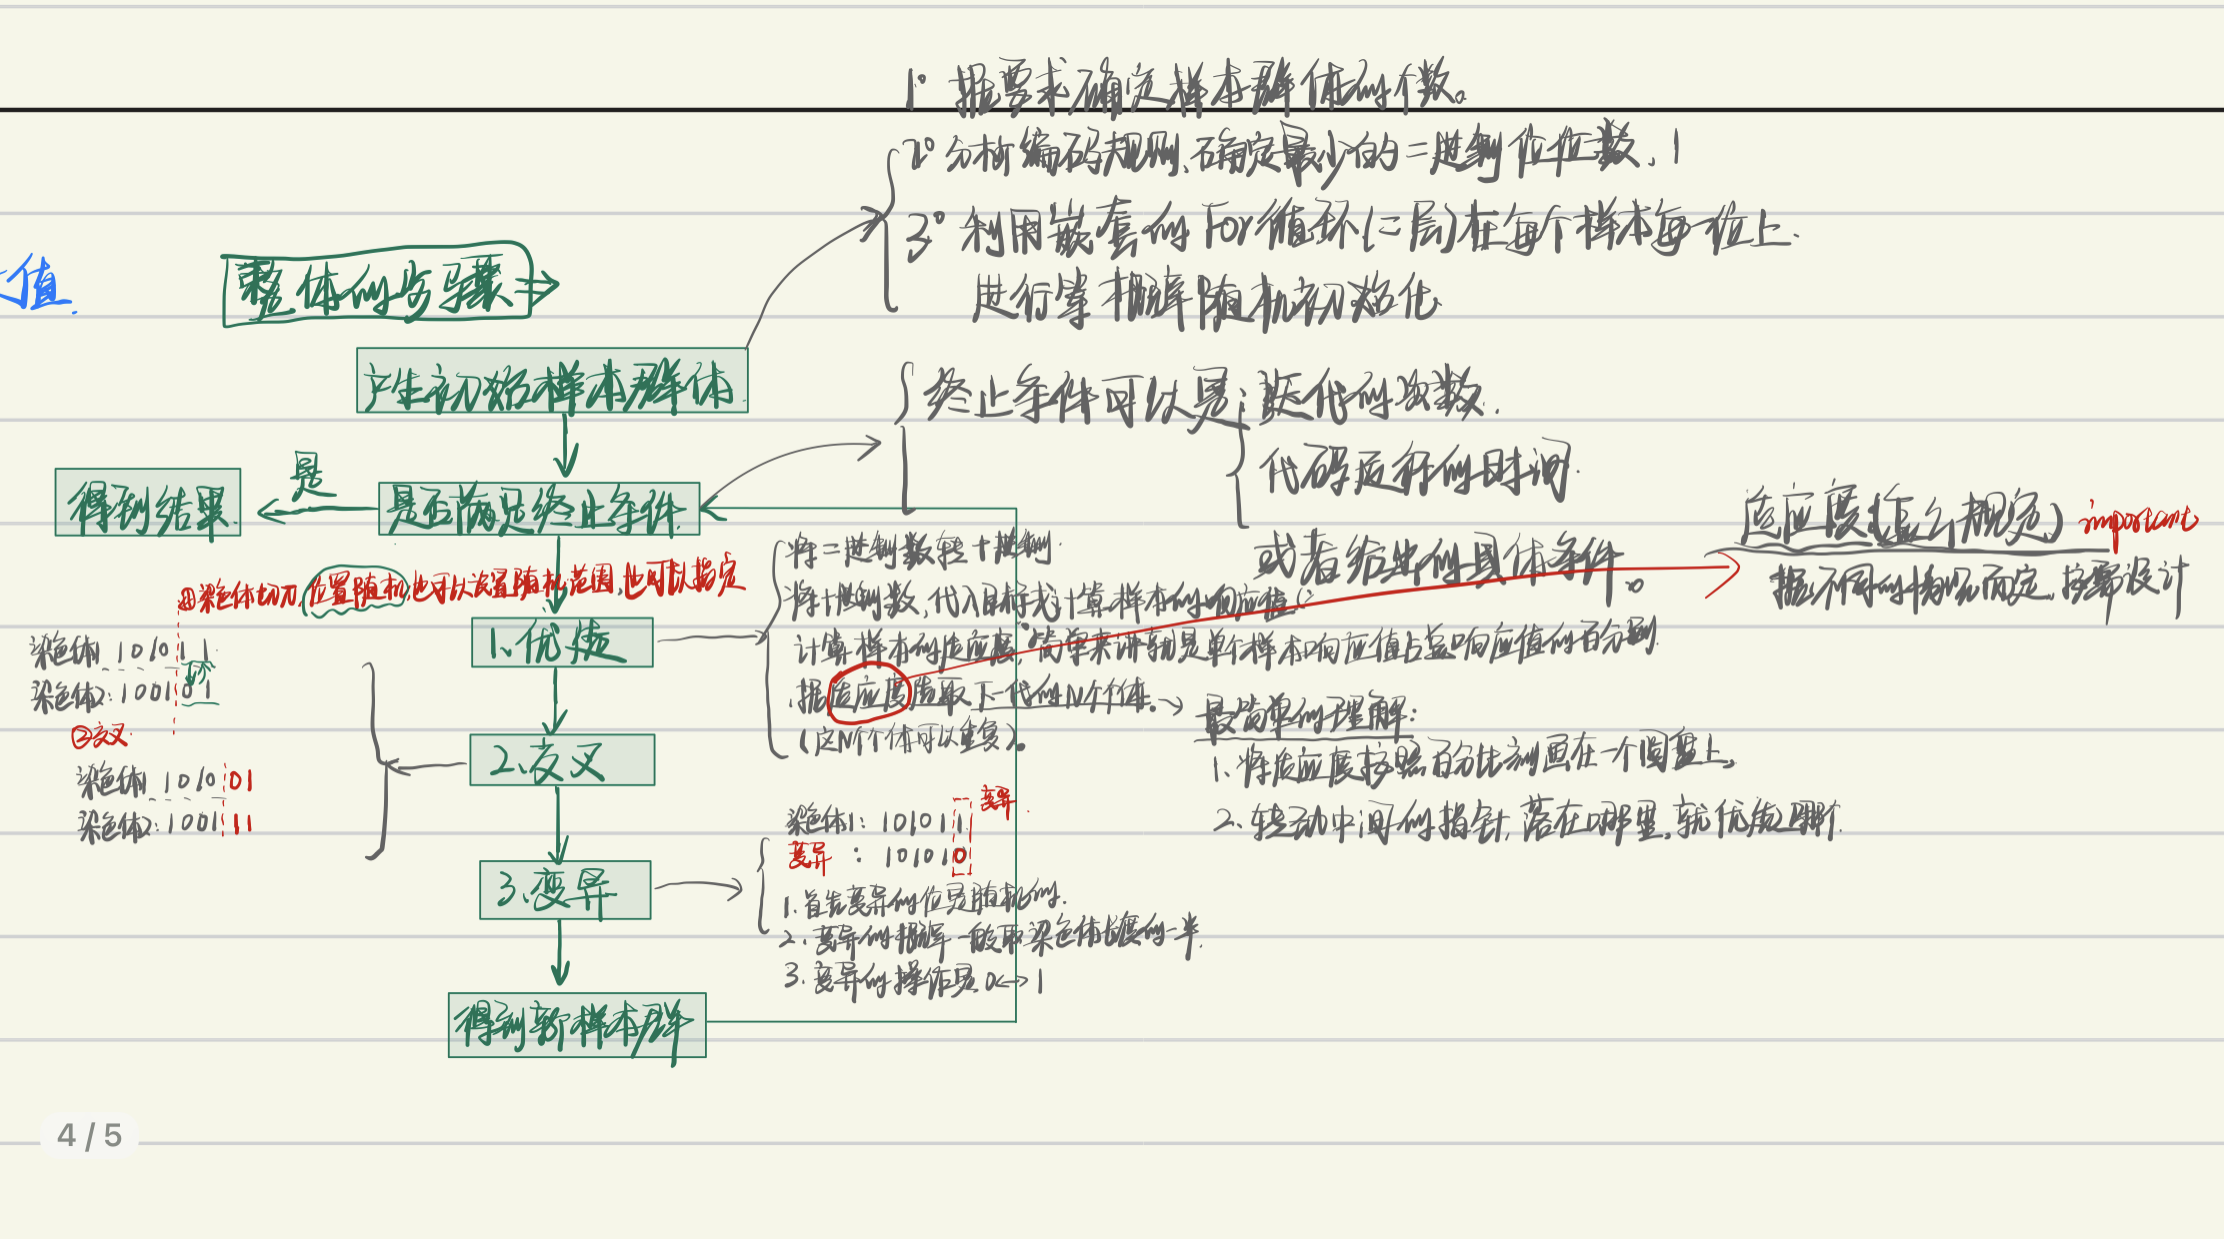 1° 据要求确定样本群体的个数。
2° 分析编码规则、确定最少的二进制位位数、1
3° 利用嵌套的 For 循环(二层)在每个样本每一位上.
进行等概率随机初始化
值.
整体的步骤
产生初始样本群体
终止条件可以是: 迭代的次数.
代码运行的时间.
或者给出的具体条件。
是
得到结果
是否满足终止条件
适应度(怎么规定) important
据不同的情况而定,按需设计
①染色体切刀,位置随机,也可以设置随机范围,也可以指定
将二进制数转十进制
将十进制数,代入目标式计算样本的响应值
计算样本的适应度,简单来讲就是单个样本响应值占总响应值的百分比
据适应度选取下一代的N个个体.
(这N个个体可以重复)。
1.优选
染色体1 101011
染色体2: 100101
②交叉
染色体1 101001
染色体2: 100111
2.交叉
最简单的理解:
1. 将适应度按照百分比刻画在一个圆盘上,
2. 转动中间的指针,落在哪里,就优先哪个.
3.变异
变异
染色体1: 101011
变异 : 101010
1. 首先变异的位是随机的.
2. 变异的概率一般取染色体长度的一半.
3. 变异的操作是 0↔1
得到新样本群
4 / 5